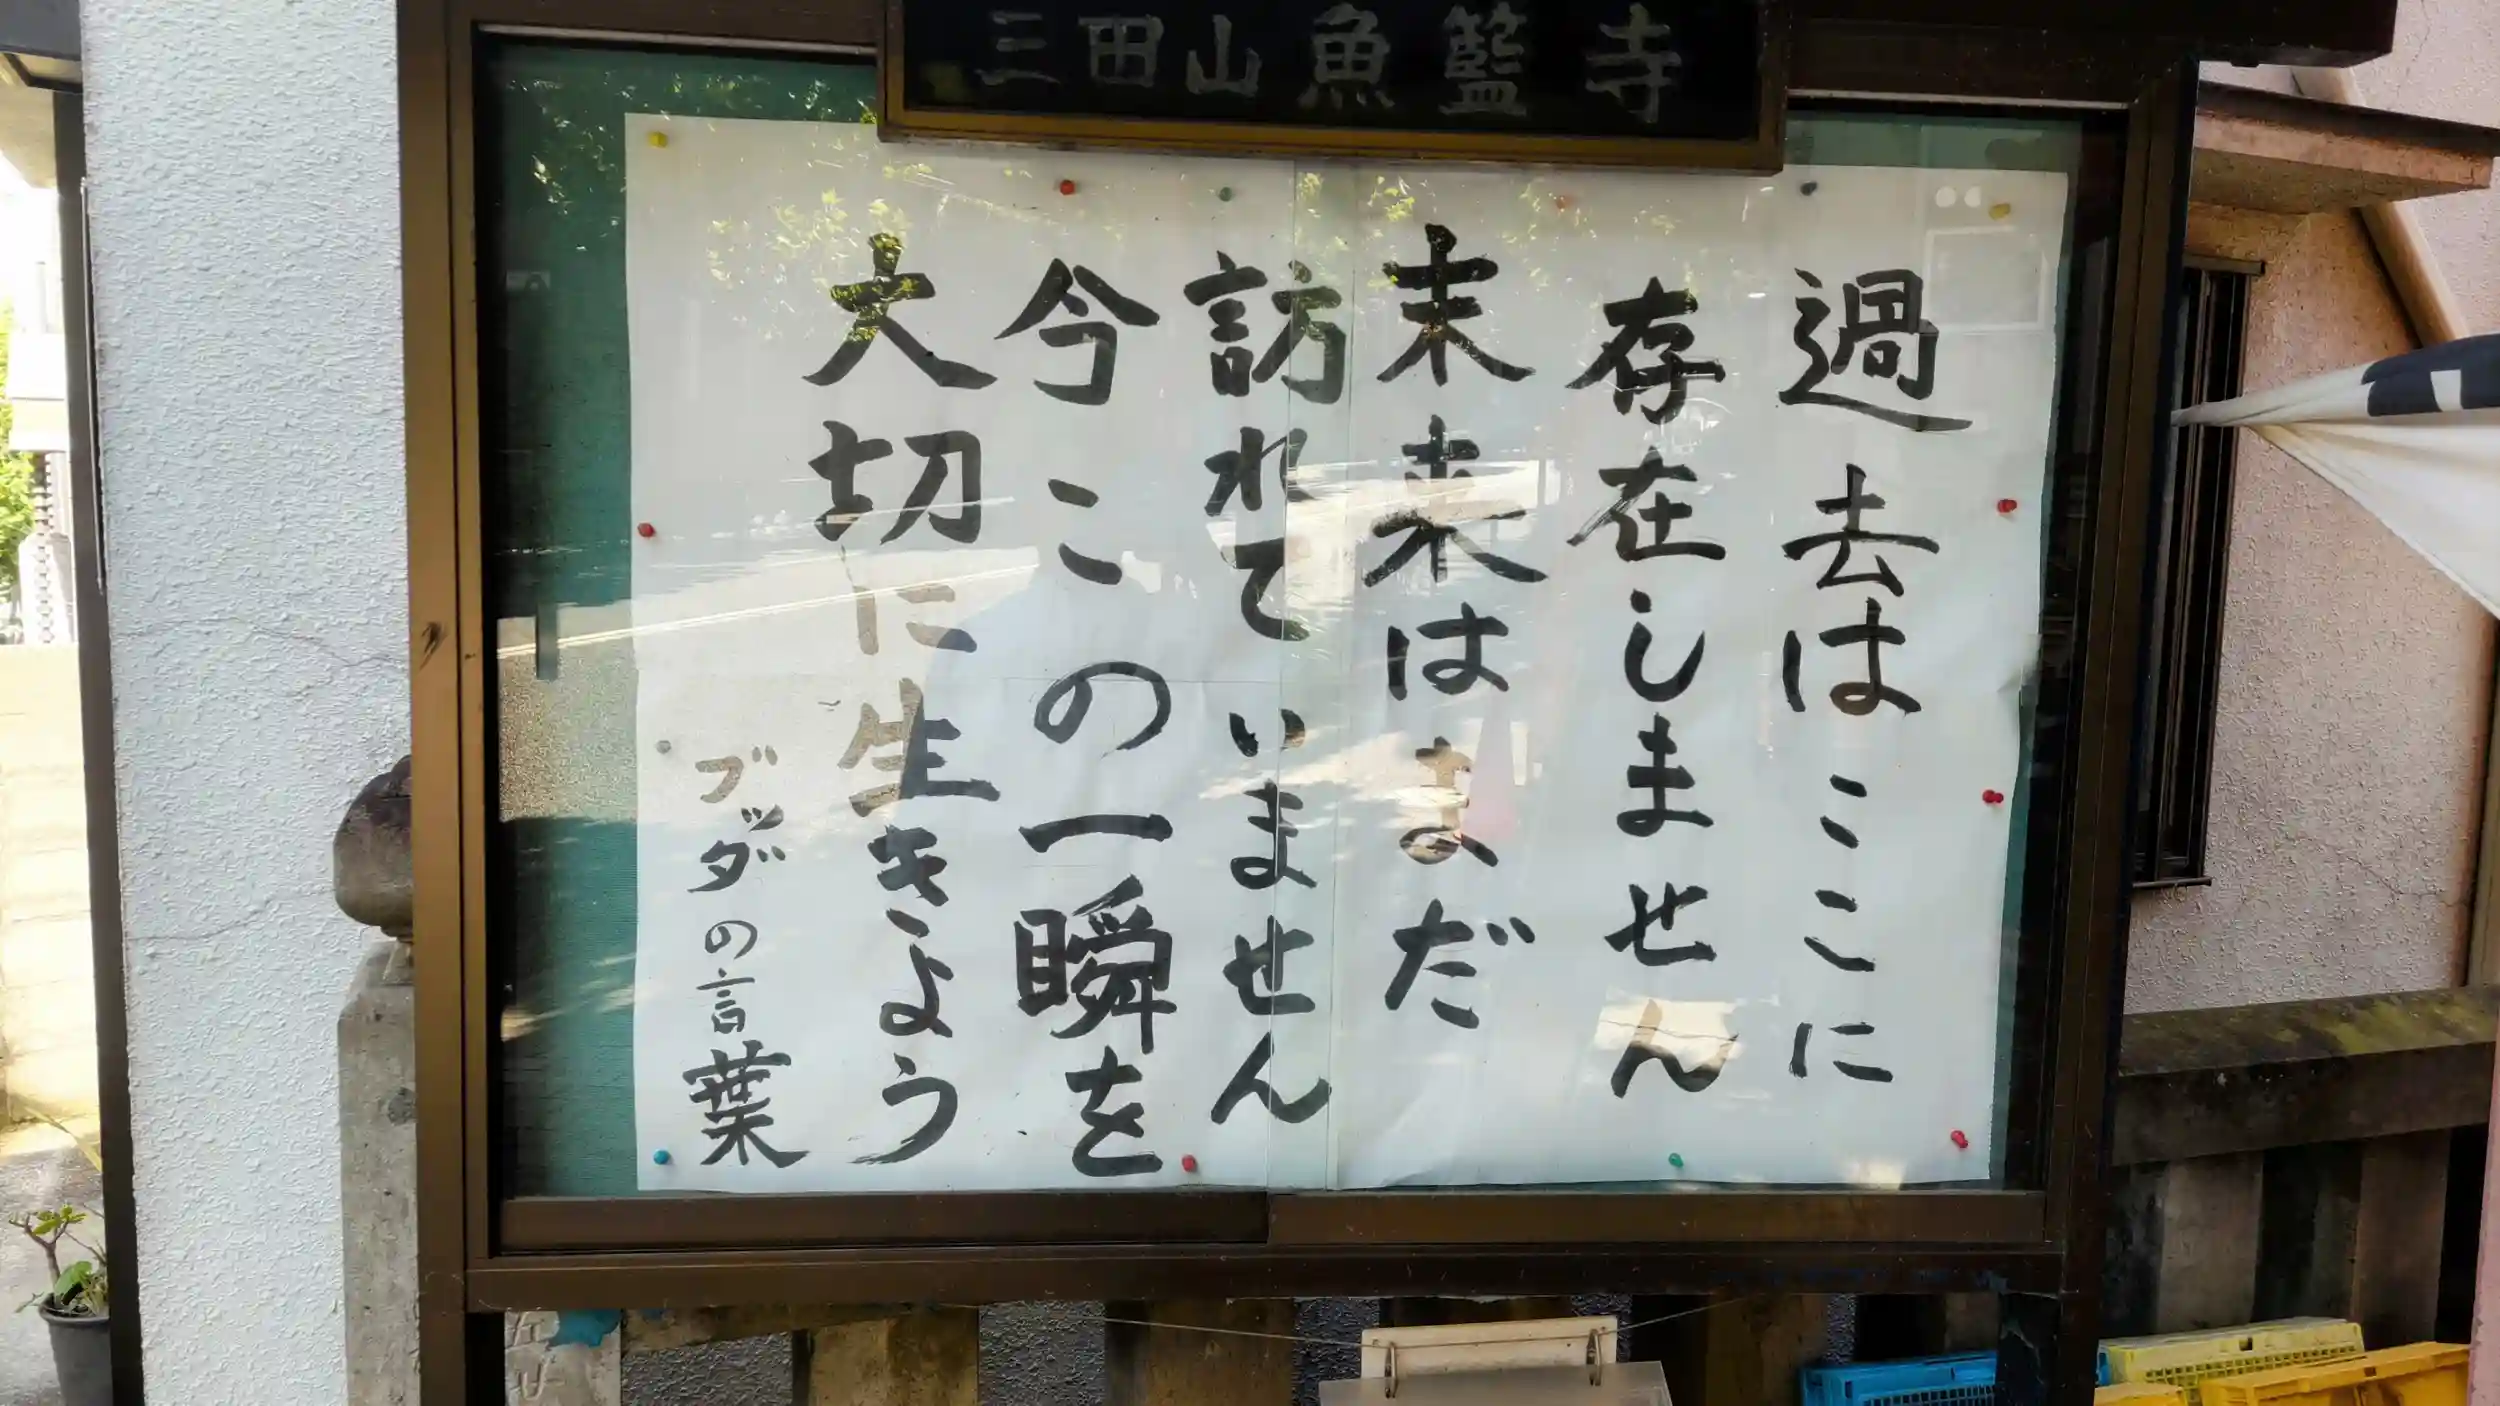 三田山魚籃寺
過去はここに
存在しません
未来はまだ
訪れていません
今この一瞬を
大切に生きよう
ブッダの言葉